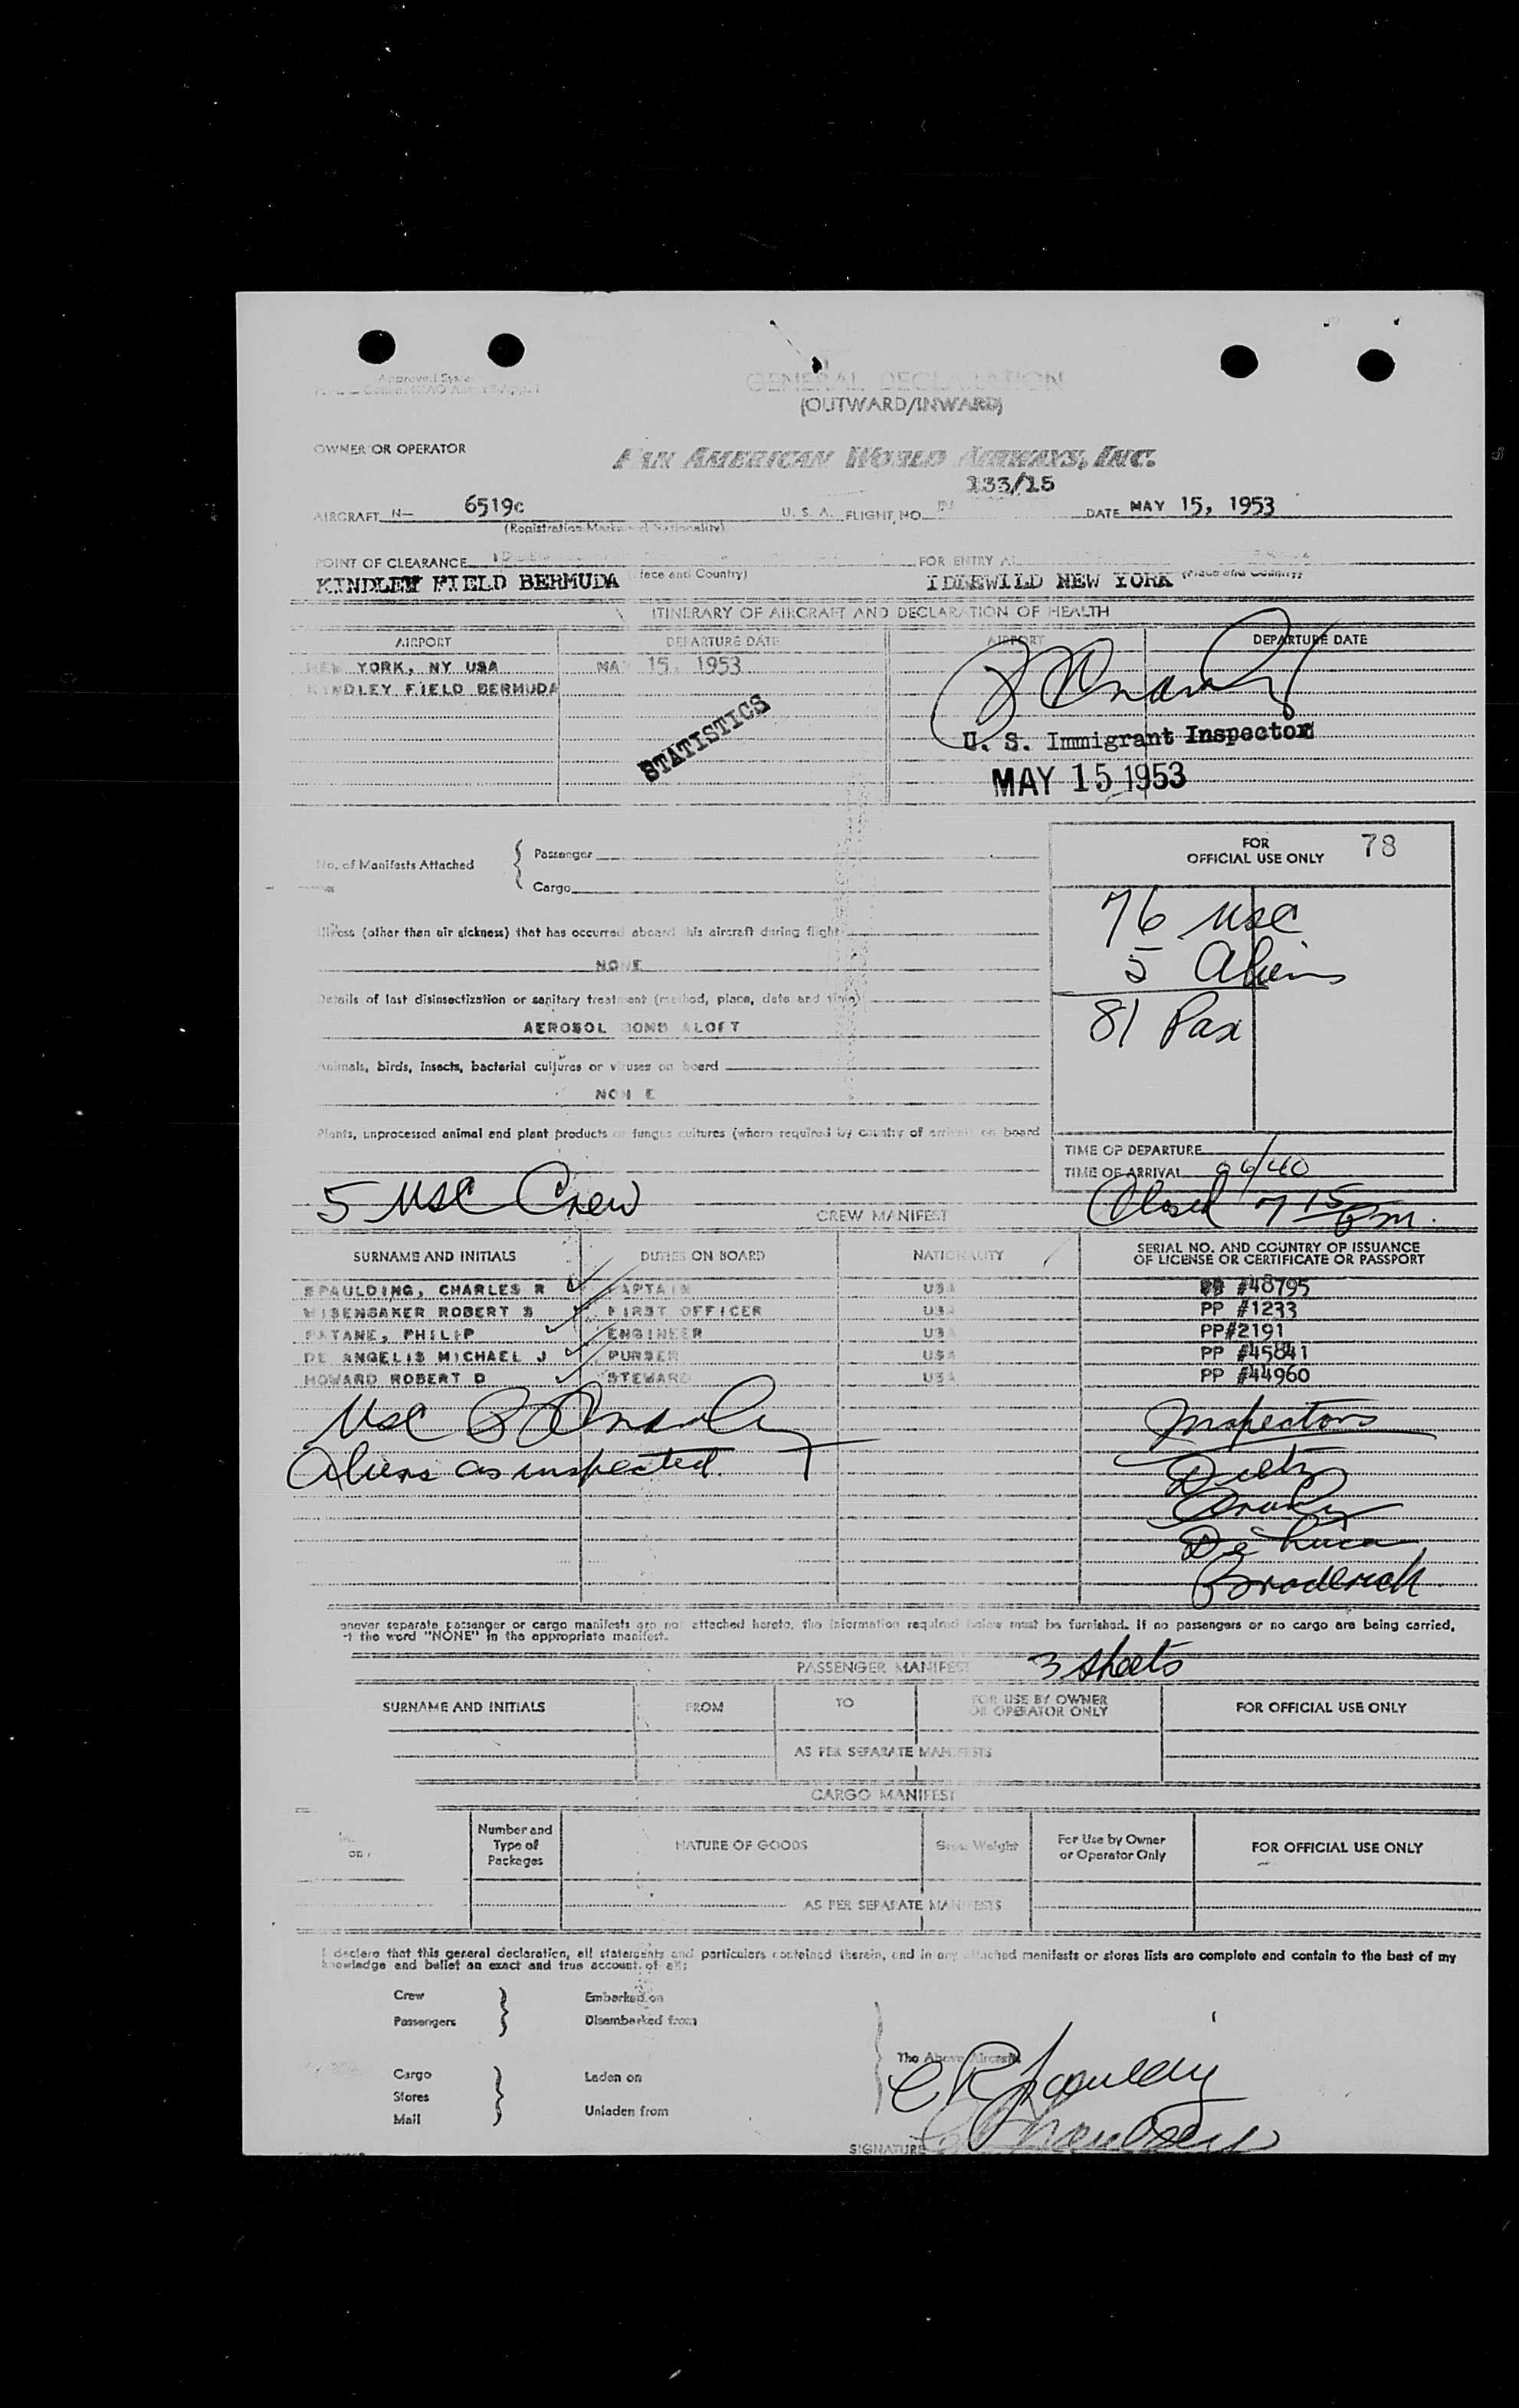 Approved System
GENERAL DECLARATION
(OUTWARD/INWARD)
OWNER OR OPERATOR
PAN AMERICAN WORLD AIRWAYS, INC.
133/15
AIRCRAFT N- 6519c U. S. A. FLIGHT NO. DATE MAY 15, 1953
(Registration Marks and Nationality)
POINT OF CLEARANCE FOR ENTRY AT
KINDLEY FIELD BERMUDA (Place and Country) IDLEWILD NEW YORK (Place and Country)
ITINERARY OF AIRCRAFT AND DECLARATION OF HEALTH
AIRPORT DEPARTURE DATE AIRPORT DEPARTURE DATE
NEW YORK, NY USA MAY 15, 1953
KINDLEY FIELD BERMUDA
STATISTICS
U. S. Immigrant Inspector
MAY 15 1953
No. of Manifests Attached { Passenger
Cargo
FOR OFFICIAL USE ONLY 78
76 USC
5 Aliens
81 Pax
Illness (other than air sickness) that has occurred aboard this aircraft during flight
NONE
Details of last disinsectization or sanitary treatment (method, place, date and time)
AEROSOL BOMB ALOFT
Animals, birds, insects, bacterial cultures or viruses on board
NON E
Plants, unprocessed animal and plant products or fungus cultures (where required by country of arrival) on board
TIME OF DEPARTURE
TIME OF ARRIVAL 06/40
5 USC Crew
Closed 7 15 pm.
CREW MANIFEST
SURNAME AND INITIALS DUTIES ON BOARD NATIONALITY SERIAL NO. AND COUNTRY OF ISSUANCE OF LICENSE OR CERTIFICATE OR PASSPORT
SPAULDING, CHARLES R CAPTAIN USA PP #48795
WISENBAKER ROBERT S FIRST OFFICER USA PP #1233
PATANE, PHILIP ENGINEER USA PP#2191
DE ANGELIS MICHAEL J PURSER USA PP #45841
HOWARD ROBERT D STEWARD USA PP #44960
USC
Aliens as inspected.
Inspectors
Dietz
De Luca
Broderick
enever separate passenger or cargo manifests are not attached hereto, the information required below must be furnished. If no passengers or no cargo are being carried,
t the word "NONE" in the appropriate manifest.
PASSENGER MANIFEST 3 sheets
SURNAME AND INITIALS FROM TO FOR USE BY OWNER OR OPERATOR ONLY FOR OFFICIAL USE ONLY
AS PER SEPARATE MANIFESTS
CARGO MANIFEST
Number and Type of Packages NATURE OF GOODS Gross Weight For Use by Owner or Operator Only FOR OFFICIAL USE ONLY
AS PER SEPARATE MANIFESTS
I declare that this general declaration, all statements and particulars contained therein, and in any attached manifests or stores lists are complete and contain to the best of my
knowledge and belief an exact and true account of all:
Crew Embarked on
Passengers Disembarked from
The Above Aircraft
Cargo Laden on
Stores
Mail Unladen from
C R Spaulding
SIGNATURE